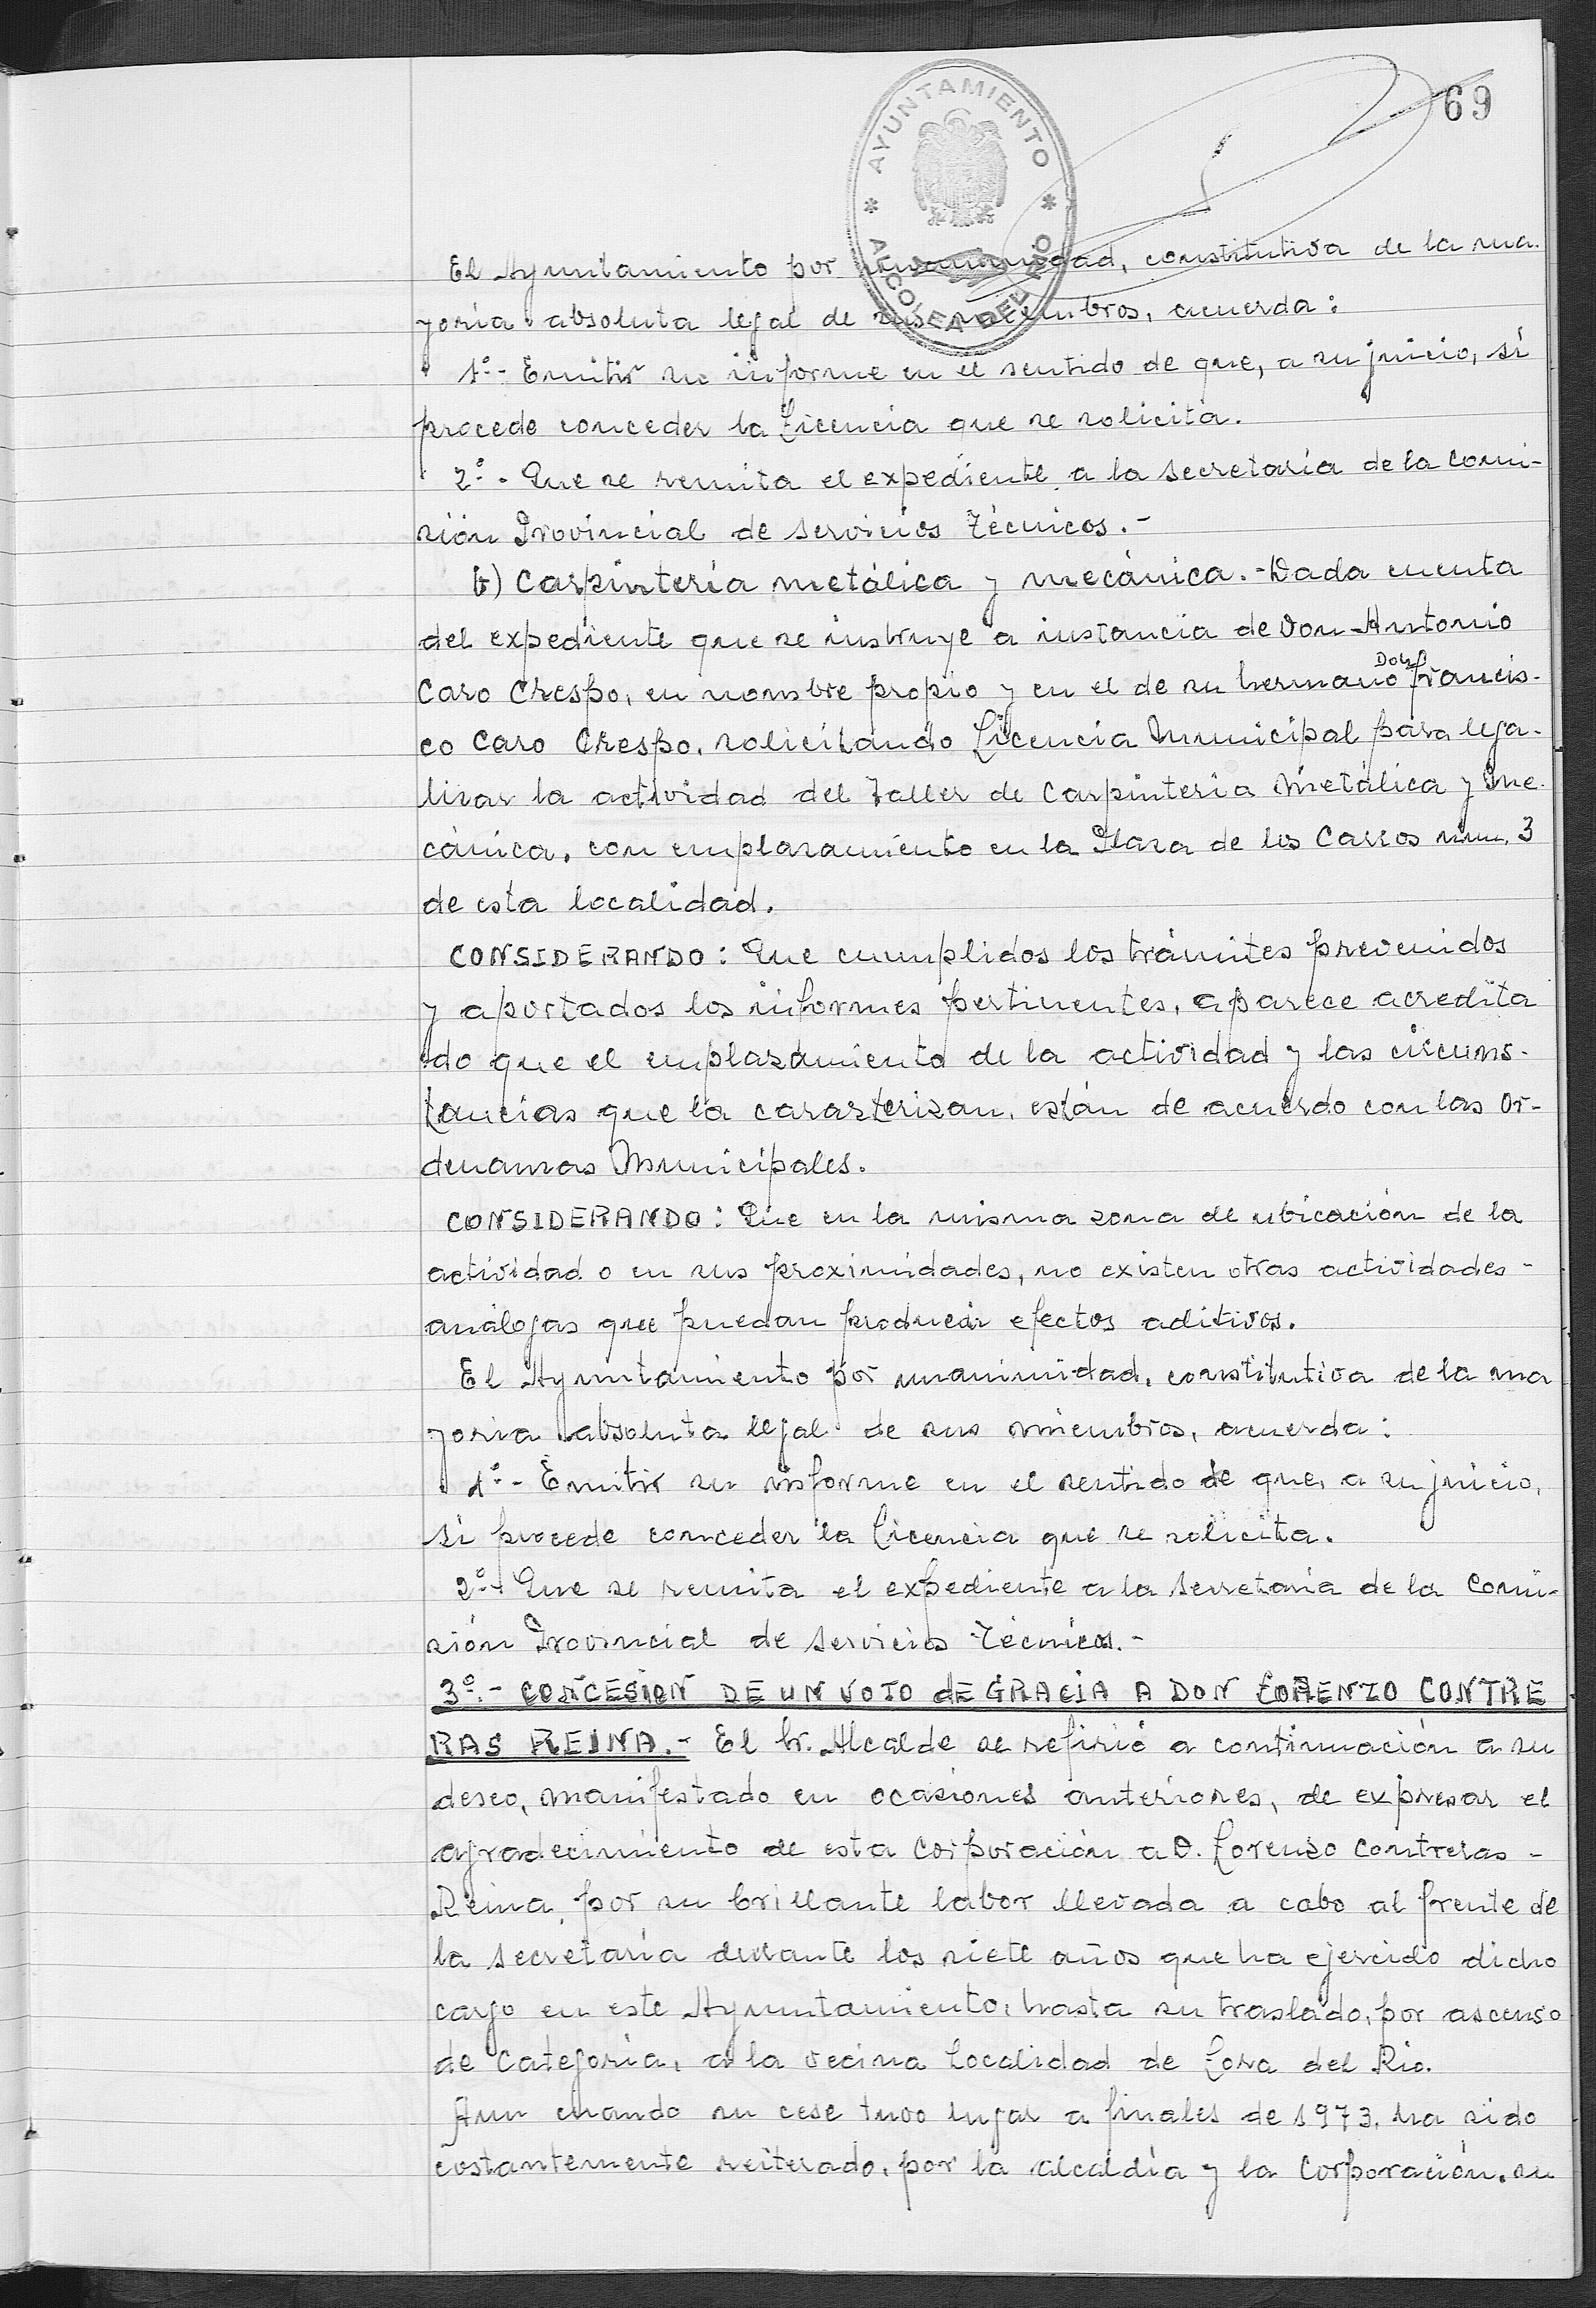 69
AYUNTAMIENTO
ALCOLEA DEL RIO
El Ayuntamiento por unanimidad, constitutiva de la ma-
yoría absoluta legal de sus miembros, acuerda:
1º.- Emitir su informe en el sentido de que, a su juicio, sí
procede conceder la Licencia que se solicita.
2º.- Que se remita el expediente a la Secretaría de la Comi-
sión Provincial de Servicios Técnicos.-
b) Carpintería metálica y mecánica.- Dada cuenta
del expediente que se instruye a instancia de Don Antonio
Caro Crespo, en nombre propio y en el de su hermano Don Francis-
co Caro Crespo, solicitando Licencia Municipal para lega-
lizar la actividad del Taller de Carpintería Metálica y Me-
cánica, con emplazamiento en la Plaza de los Carros núm. 3
de esta localidad.
CONSIDERANDO: Que cumplidos los trámites prevenidos
y aportados los informes pertinentes, aparece acredita
do que el emplazamiento de la actividad y las circuns-
tancias que la cararterizan, están de acuerdo con las Or-
denanzas Municipales.
CONSIDERANDO: Que en la misma zona de ubicación de la
actividad o en sus proximidades, no existen otras actividades -
análogas que puedan producir efectos aditivos.
El Ayuntamiento por unanimidad, constitutiva de la ma
yoría absoluta legal de sus miembros, acuerda:
1º.- Emitir su informe en el sentido de que, a su juicio,
sí procede conceder la Licencia que se solicita.
2º.- Que se remita el expediente a la Secretaría de la Comi-
sión Provincial de Servicios Técnicos.-
3º.- CONCESION DE UN VOTO de GRACIA A DON LORENZO CONTRE
RAS REINA.- El Sr. Alcalde se refirió a continuación a su
deseo, manifestado en ocasiones anteriores, de expresar el
agradecimiento de esta Corporación a D. Lorenzo Contreras -
Reina, por su brillante labor llevada a cabo al frente de
la Secretaría durante los siete años que ha ejercido dicho
cargo en este Ayuntamiento, hasta su traslado, por ascenso
de Categoría, a la vecina Localidad de Lora del Rio.
Aun cuando su cese tuvo lugar a finales de 1973, ha sido
costantemente reiterado, por la alcaldía y la Corporación, su